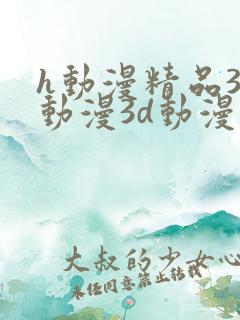 h動漫精品3
動漫3d動漫
大叔的少女心
未任同意禁止转载